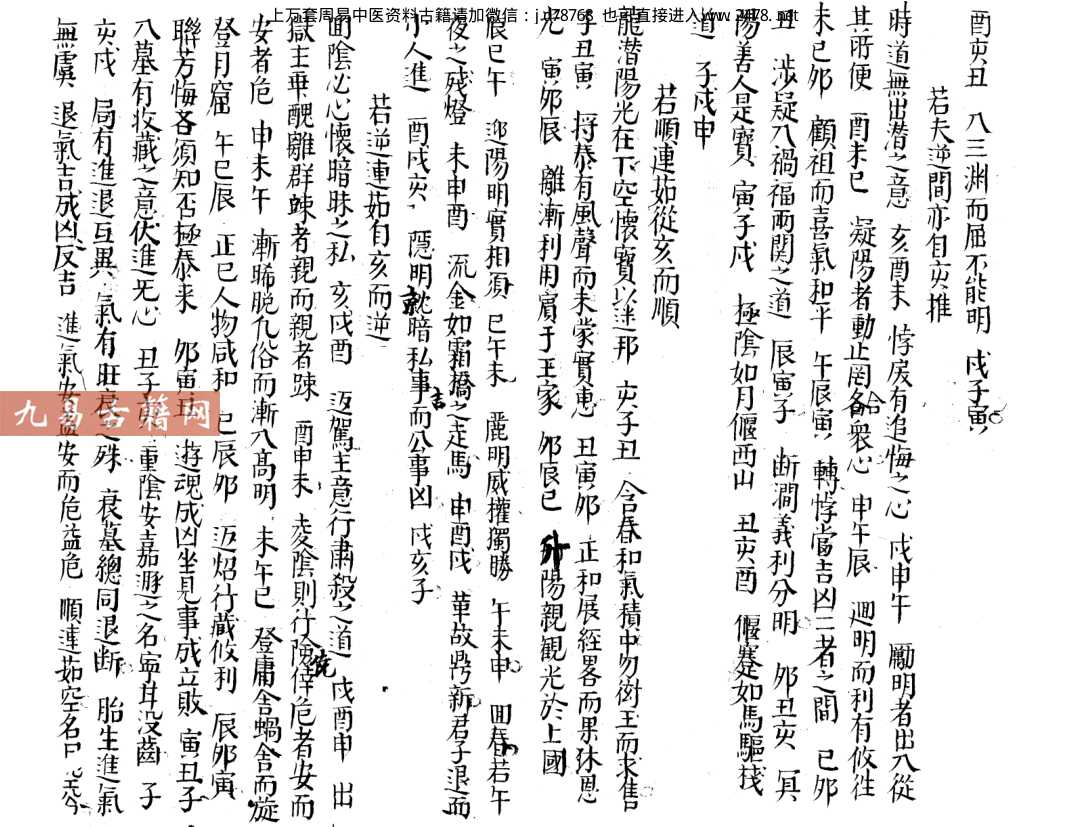 上万套周易中医资料古籍请加微信：j 78763 也可直接进入 www 2478. net
酉亥丑 八三淵而屈不能明 戌子寅
若夫逆間亦自亥推
時道無出潜之意 亥酉未 悖戾有追悔之心 戌申午 勵明者出入從
其所便 酉未巳 凝陽者動止罔咎衆心 申午辰 迴明而利有攸往
未巳夘 顧祖而喜氣和平 午辰寅 轉悖當吉凶二者之間 巳夘
丑 涉疑入禍福兩関之道 辰寅子 断澗義利分明 夘丑亥 冥
陽善人是寳 寅子戌 極陰如月偃西山 丑亥酉 偃蹇如馬驅栈
道 子戌申
若順連茹從亥而順
龍潜陽光在下空懷寳以迷邦 亥子丑 含春和氣積中勿衒玉而求售
子丑寅 將泰有風聲而未蒙實惠 丑寅夘 正和展經畧而果沐恩
光 寅夘辰 離漸利用賓于王家 夘辰巳 升陽親観光於上國
辰巳午 迎陽明實相須 巳午未 麗明威權獨勝 午未申 回春若午
夜之残燈 未申酉 流金如霜橋之走馬 申酉戌 革故鼎新君子退而
小人進 酉戌亥 隱明就暗私事吉而公事凶 戌亥子
若逆連茹自亥而逆
回陰必心懷暗昧之私 亥戌酉 返駕主意行肅殺之道 戌酉申 出
獄主乖醜離群踈者親而親者踈 酉申未 凌陰則行險侥倖危者安而
安者危 申未午 漸晞脱凡俗而漸入高明 未午巳 登庸舍蝸舍而旋
登月窟 午巳辰 正巳人物咸和 巳辰夘 返炤行藏攸利 辰夘寅
聯芳悔吝須知否極泰来 夘寅丑 遊魂成凶坐見事成立敗 寅丑子
入墓有收藏之意伏進无心 丑子亥 重陰安嘉遯之名寧甘没齒 子
亥戌 局有進退互異 氣有旺衰之殊 衰墓總同退断 胎生進氣
無虞 退氣吉成凶反吉 進氣安益安而危益危 順連茹空名
九易古籍网